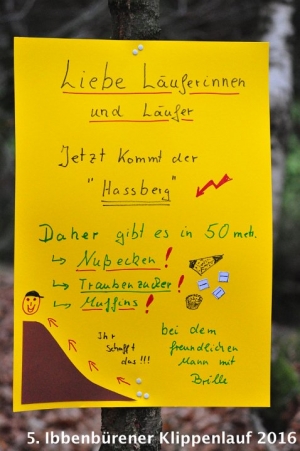 Liebe Läuferinnen
und Läufer
Jetzt kommt der
"Hassberg"
Daher gibt es in 50 metr.
↳ Nußecken!
↳ Traubenzucker!
↳ Muffins!
Ihr
schafft
das!!!
bei dem
freundlichen
Mann mit
Brille
5. Ibbenbürener Klippenlauf 2016